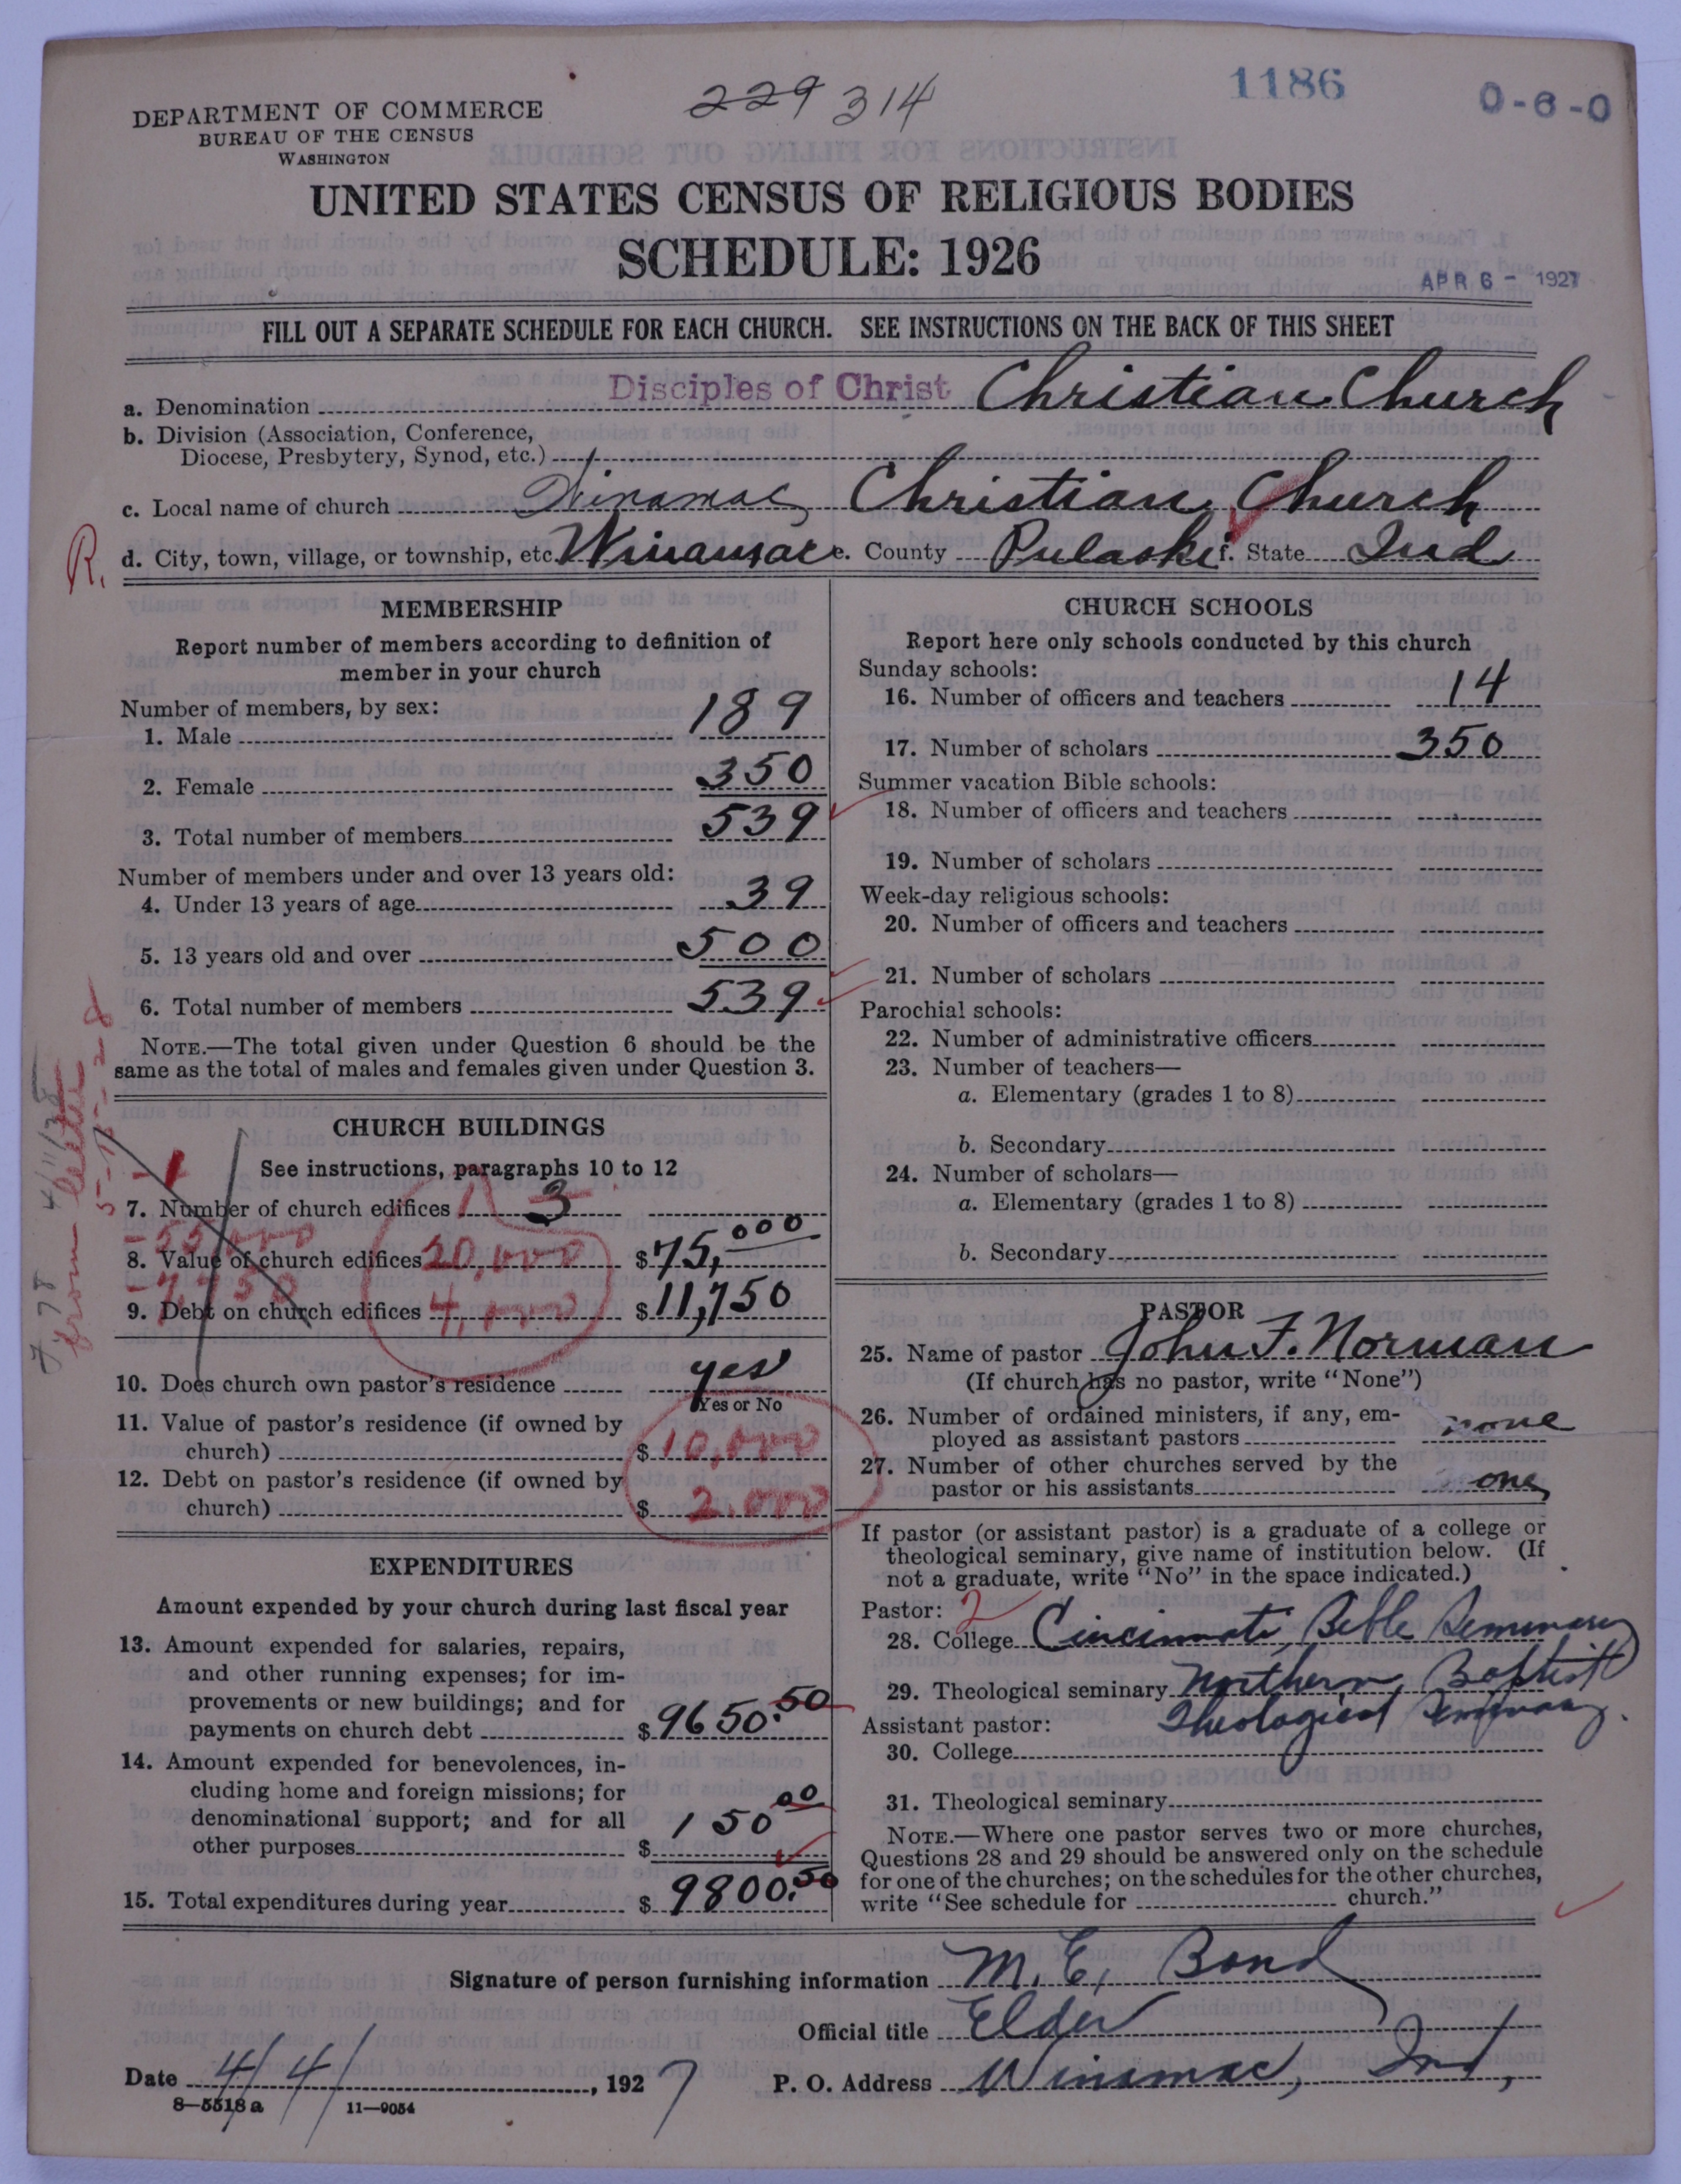 229 314
1186
0-6-0
DEPARTMENT OF COMMERCE
BUREAU OF THE CENSUS
WASHINGTON
UNITED STATES CENSUS OF RELIGIOUS BODIES
SCHEDULE: 1926
APR 6 - 1927
FILL OUT A SEPARATE SCHEDULE FOR EACH CHURCH. SEE INSTRUCTIONS ON THE BACK OF THIS SHEET
a. Denomination Disciples of Christ Christian Church
b. Division (Association, Conference,
Diocese, Presbytery, Synod, etc.)
c. Local name of church Winamac Christian Church
R. d. City, town, village, or township, etc. Winamac e. County Pulaski f. State Ind
MEMBERSHIP
Report number of members according to definition of
member in your church
Number of members, by sex:
1. Male 189
2. Female 350
3. Total number of members 539
Number of members under and over 13 years old:
4. Under 13 years of age 39
5. 13 years old and over 500
6. Total number of members 539
NOTE.—The total given under Question 6 should be the
same as the total of males and females given under Question 3.
from letter 5-15-28
CHURCH BUILDINGS
See instructions, paragraphs 10 to 12
-1
7. Number of church edifices 1 3
-55,000
8. Value of church edifices 20,000 $75,000
-7,750
9. Debt on church edifices 4,000 $11,750
10. Does church own pastor's residence yes
Yes or No
11. Value of pastor's residence (if owned by
church) $10,000
12. Debt on pastor's residence (if owned by
church) $2,000
EXPENDITURES
Amount expended by your church during last fiscal year
13. Amount expended for salaries, repairs,
and other running expenses; for im-
provements or new buildings; and for
payments on church debt $9650.50
14. Amount expended for benevolences, in-
cluding home and foreign missions; for
denominational support; and for all
other purposes $150 00
15. Total expenditures during year $9800.50
CHURCH SCHOOLS
Report here only schools conducted by this church
Sunday schools:
16. Number of officers and teachers 14
17. Number of scholars 350
Summer vacation Bible schools:
18. Number of officers and teachers
19. Number of scholars
Week-day religious schools:
20. Number of officers and teachers
21. Number of scholars
Parochial schools:
22. Number of administrative officers
23. Number of teachers—
a. Elementary (grades 1 to 8)
b. Secondary
24. Number of scholars—
a. Elementary (grades 1 to 8)
b. Secondary
PASTOR
25. Name of pastor John F. Norman
(If church has no pastor, write "None")
26. Number of ordained ministers, if any, em-
ployed as assistant pastors none
27. Number of other churches served by the
pastor or his assistants one
If pastor (or assistant pastor) is a graduate of a college or
theological seminary, give name of institution below. (If
not a graduate, write "No" in the space indicated.)
Pastor: 2
28. College Cincinnati Bible Seminary
29. Theological seminary Northern Baptist
Theological Seminary.
Assistant pastor:
30. College
31. Theological seminary
NOTE.—Where one pastor serves two or more churches,
Questions 28 and 29 should be answered only on the schedule
for one of the churches; on the schedules for the other churches,
write "See schedule for church."
Signature of person furnishing information M. E. Bond
Official title Elder
Date 4/4/, 1927 P. O. Address Winamac, Ind,
8—5518 a 11—9054